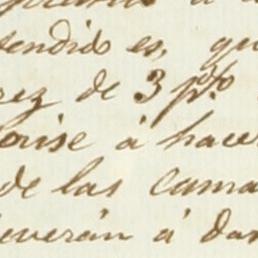 tendido es, qu
rez de 3 p%
orise á hacer
de las cama
leverán á dar